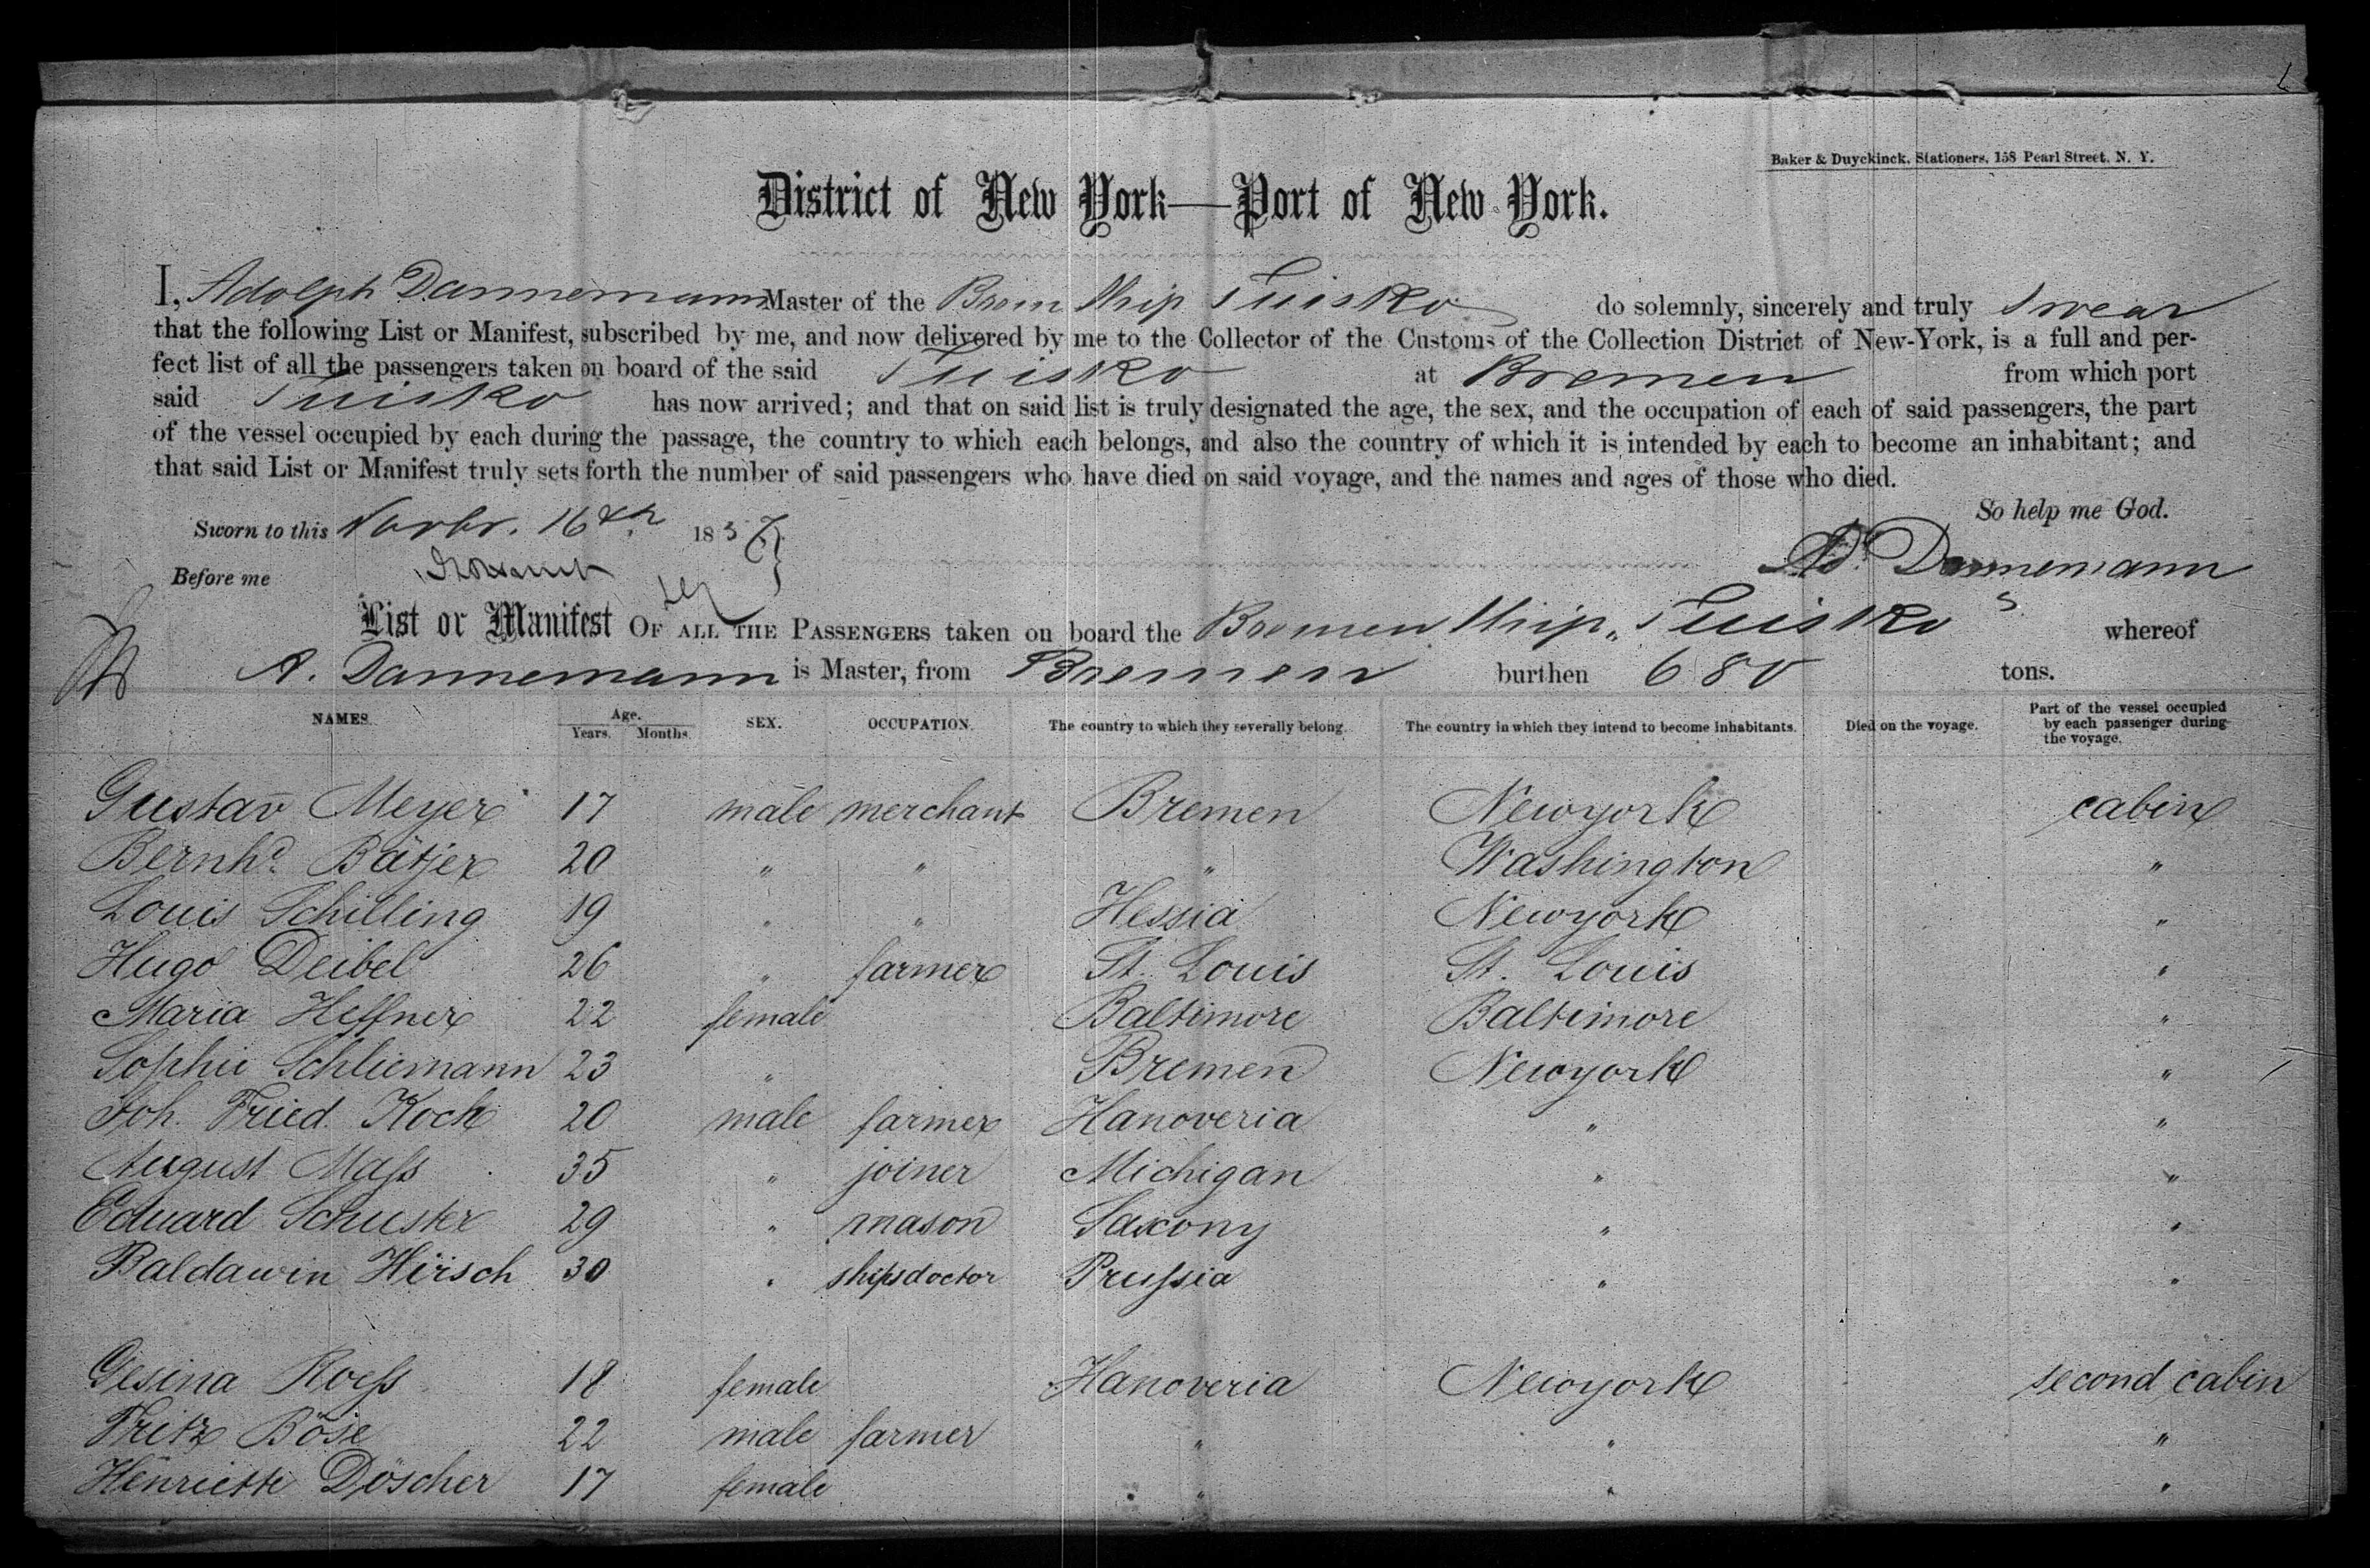 Baker & Duyckinck, Stationers, 158 Pearl Street, N. Y.
District of New York—Port of New York.
I, Adolph Dannemann Master of the Brem Ship Tuisko do solemnly, sincerely and truly swear
that the following List or Manifest, subscribed by me, and now delivered by me to the Collector of the Customs of the Collection District of New-York, is a full and per-
fect list of all the passengers taken on board of the said Tuisko at Bremen from which port
said Tuisko has now arrived; and that on said list is truly designated the age, the sex, and the occupation of each of said passengers, the part
of the vessel occupied by each during the passage, the country to which each belongs, and also the country of which it is intended by each to become an inhabitant; and
that said List or Manifest truly sets forth the number of said passengers who have died on said voyage, and the names and ages of those who died.
So help me God.
Sworn to this Novbr. 16th 1857
Ad. Dannemann
Before me
List or Manifest OF ALL THE PASSENGERS taken on board the Bremen Ship „Tuisko" whereof
A. Dannemann is Master, from Bremen burthen 680 tons.
NAMES. Age. Years. Months. SEX. OCCUPATION. The country to which they severally belong. The country in which they intend to become inhabitants. Died on the voyage. Part of the vessel occupied by each passenger during the voyage.
Gustav Meyer 17 male merchant Bremen Newyork cabin
Bernhd. Bätjer 20 " " " Washington "
Louis Schilling 19 " " Hessia Newyork "
Hugo Deibel 26 " farmer St. Louis St. Louis "
Maria Heffner 22 female Baltimore Baltimore "
Sophie Schliemann 23 " Bremen Newyork "
Joh. Fried. Koch 20 male farmer Hanoveria " "
August Maſs 35 " joiner Michigan " "
Eduard Schuster 29 " mason Saxony " "
Baldawin Hirsch 30 " shipsdoctor Pruſsia " "
Gesina Roeſs 18 female Hanoveria Newyork second cabin
Fritz Böse 22 male farmer " " "
Henriette Döscher 17 female " " "